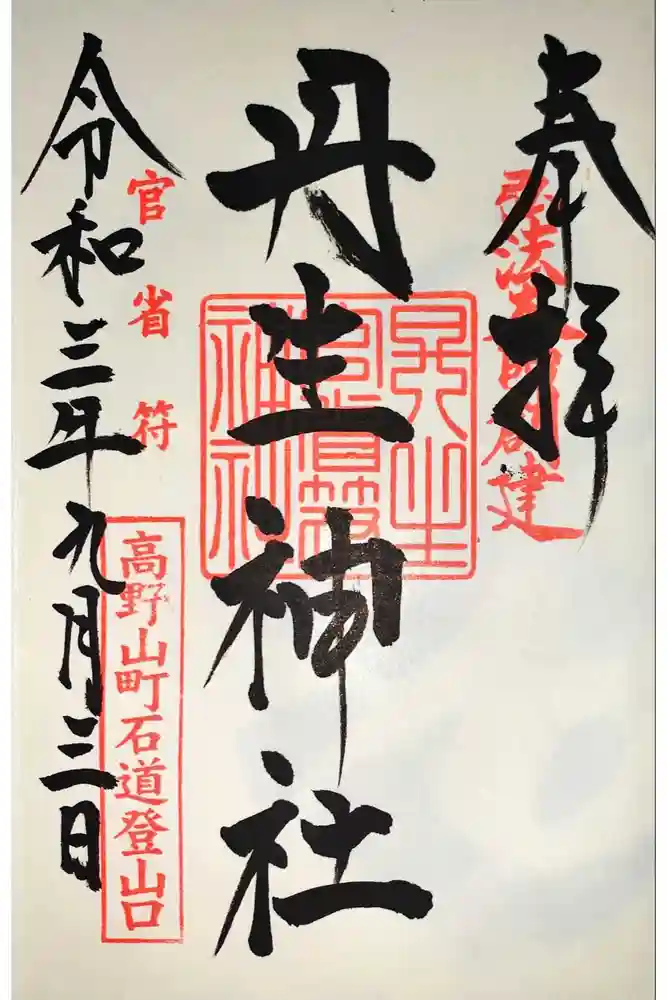 奉拝
弘法大師創建
丹生神社
丹生官省符神社
官省符
高野山町石道登山口
令和三年九月三日